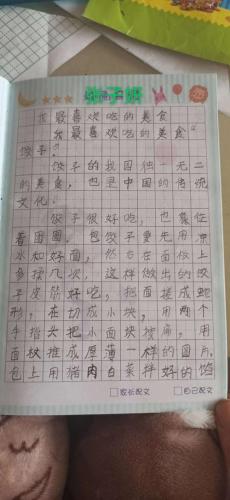 我最喜欢吃的美食
我最喜欢吃的美食“
饺子”
饺子的我国独一无二
的美食，也是中国的传统
文化。
饺子很好吃，也
着团圆。包饺子要先用凉
水和好面，然后在面板上
多揉几次，这样做出的饺
子皮筋好吃，把面揉成
形，在切成小块，用两个
手指头把小面块按扁，用
面杖推成厚薄一样的圆片，
包上用猪肉白菜拌好的馅
家长配文
自己配文